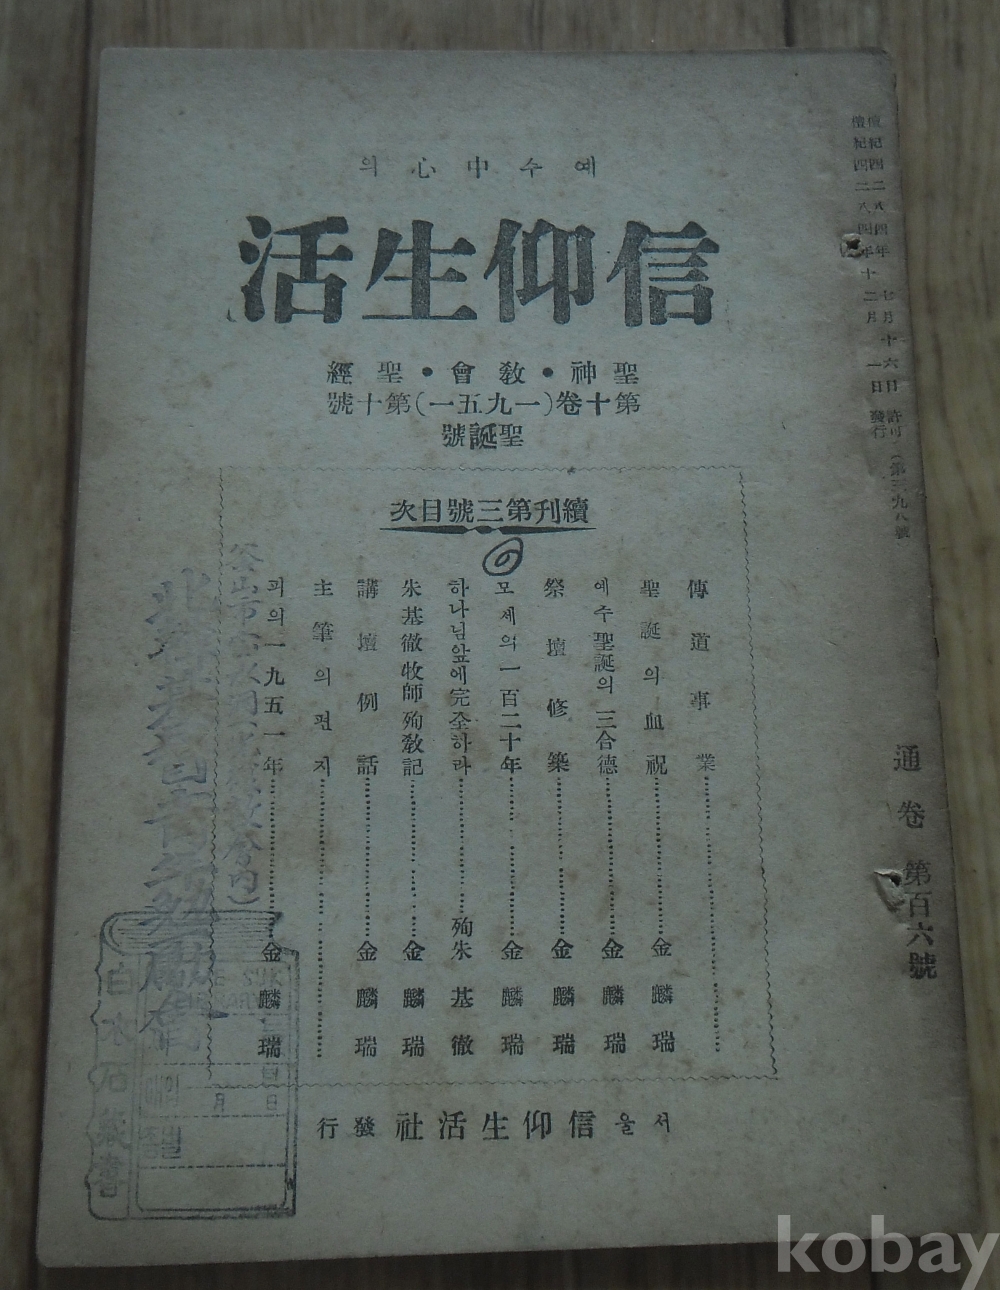 檀紀四二八四年 七月十六日 許可 (第三九八號
檀紀四二八四年十二月 一日 發行
通卷 第百六號
예수中心의
信仰生活
聖神・敎會・聖經
第十卷(一九五一)第十號
聖誕號
續刊第三號目次
傳道事業
聖誕의血祝 金麟瑞
예수聖誕의三合德 金麟瑞
祭壇修築 金麟瑞
모세의一百二十年 金麟瑞
하나님앞에完全하라 殉 朱基徹
朱基徹牧師殉敎記 金麟瑞
講壇例話 金麟瑞
主筆의편지
피의一九五一年 金麟瑞
서울 信仰生活社發行
白水石藏書
月 日
kobay